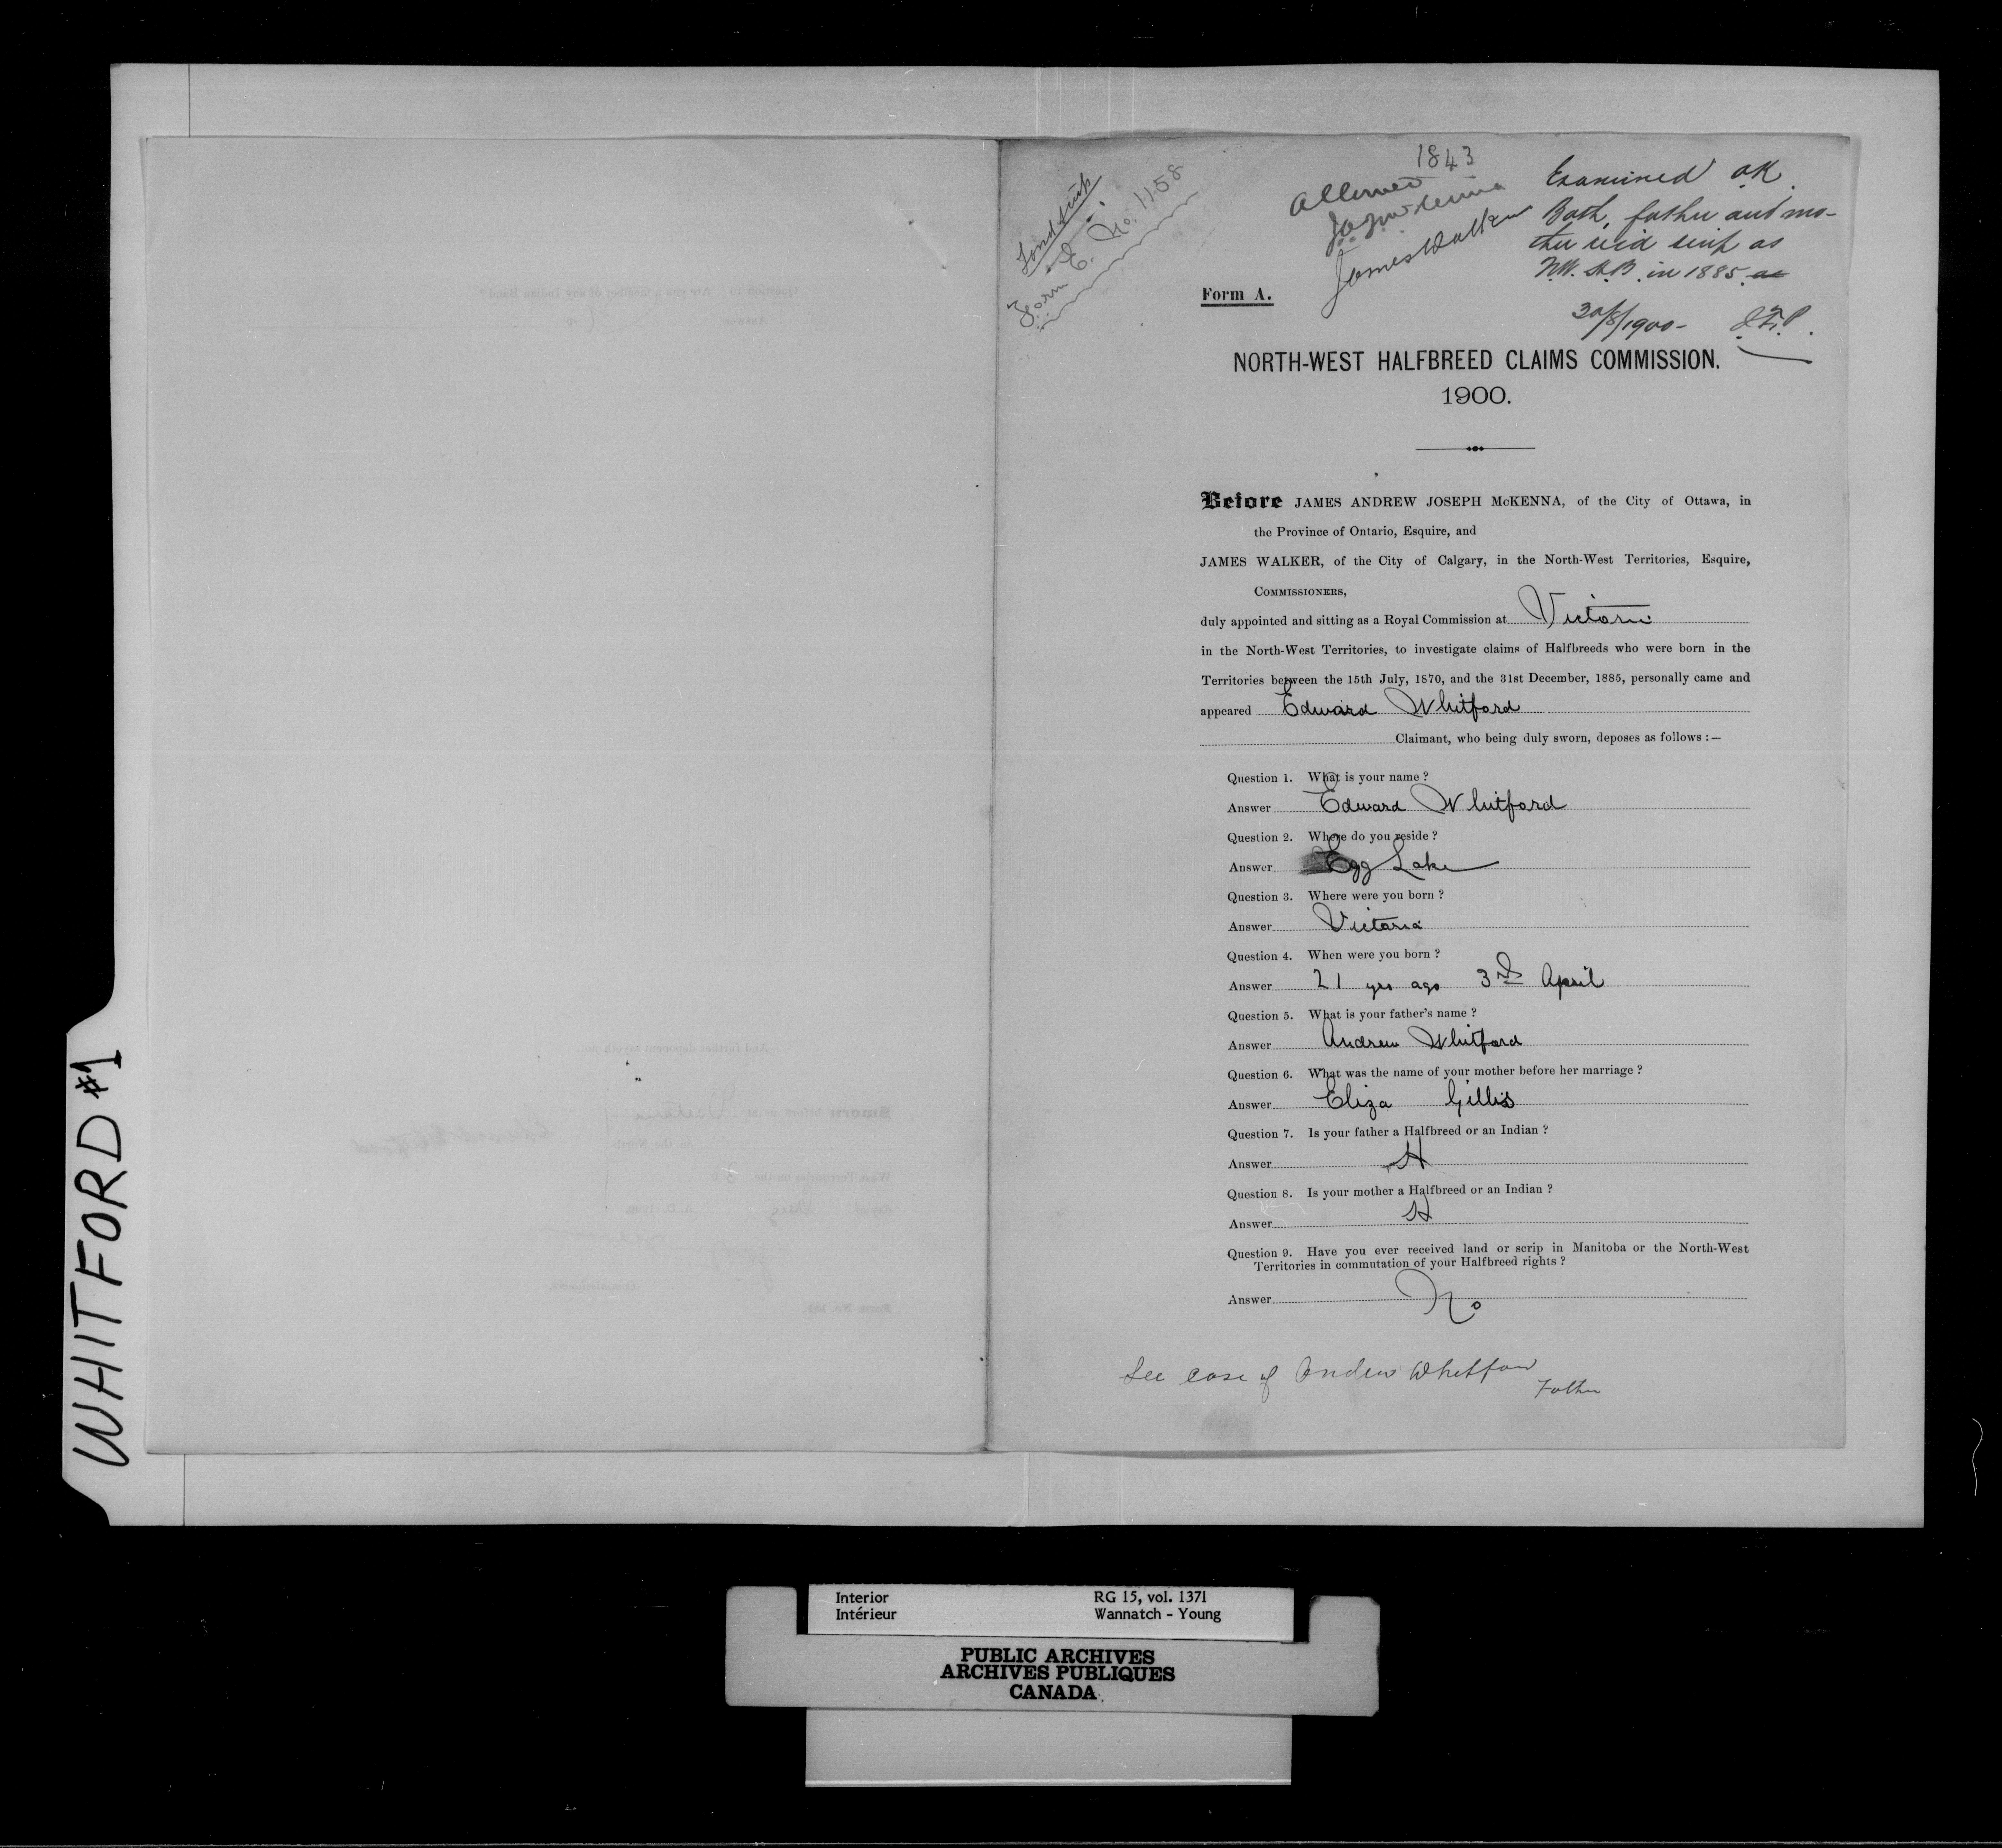 WHITFORD #1
Land Scrip
Form E. No. 1158
1843
Allowed
J.A.J. McKenna
James Walker
Examined O.K.
Both father and mo-
ther rec'd scrip as
N.W. H.B. in 1885 as
30/8/1900 -
Form A.
NORTH-WEST HALFBREED CLAIMS COMMISSION.
1900.
Before JAMES ANDREW JOSEPH McKENNA, of the City of Ottawa, in
the Province of Ontario, Esquire, and
JAMES WALKER, of the City of Calgary, in the North-West Territories, Esquire,
COMMISSIONERS,
duly appointed and sitting as a Royal Commission at Victoria
in the North-West Territories, to investigate claims of Halfbreeds who were born in the
Territories between the 15th July, 1870, and the 31st December, 1885, personally came and
appeared Edward Whitford
Claimant, who being duly sworn, deposes as follows :—
Question 1. What is your name ?
Answer Edward Whitford
Question 2. Where do you reside ?
Answer Egg Lake
Question 3. Where were you born ?
Answer Victoria
Question 4. When were you born ?
Answer 21 yrs ago 3rd April
Question 5. What is your father's name ?
Answer Andrew Whitford
Question 6. What was the name of your mother before her marriage ?
Answer Eliza Gillis
Question 7. Is your father a Halfbreed or an Indian ?
Answer H
Question 8. Is your mother a Halfbreed or an Indian ?
Answer H
Question 9. Have you ever received land or scrip in Manitoba or the North-West
Territories in commutation of your Halfbreed rights ?
Answer No
See case of Andrew Whitford
Father
Interior RG 15, vol. 1371
Intérieur Wannatch - Young
PUBLIC ARCHIVES
ARCHIVES PUBLIQUES
CANADA